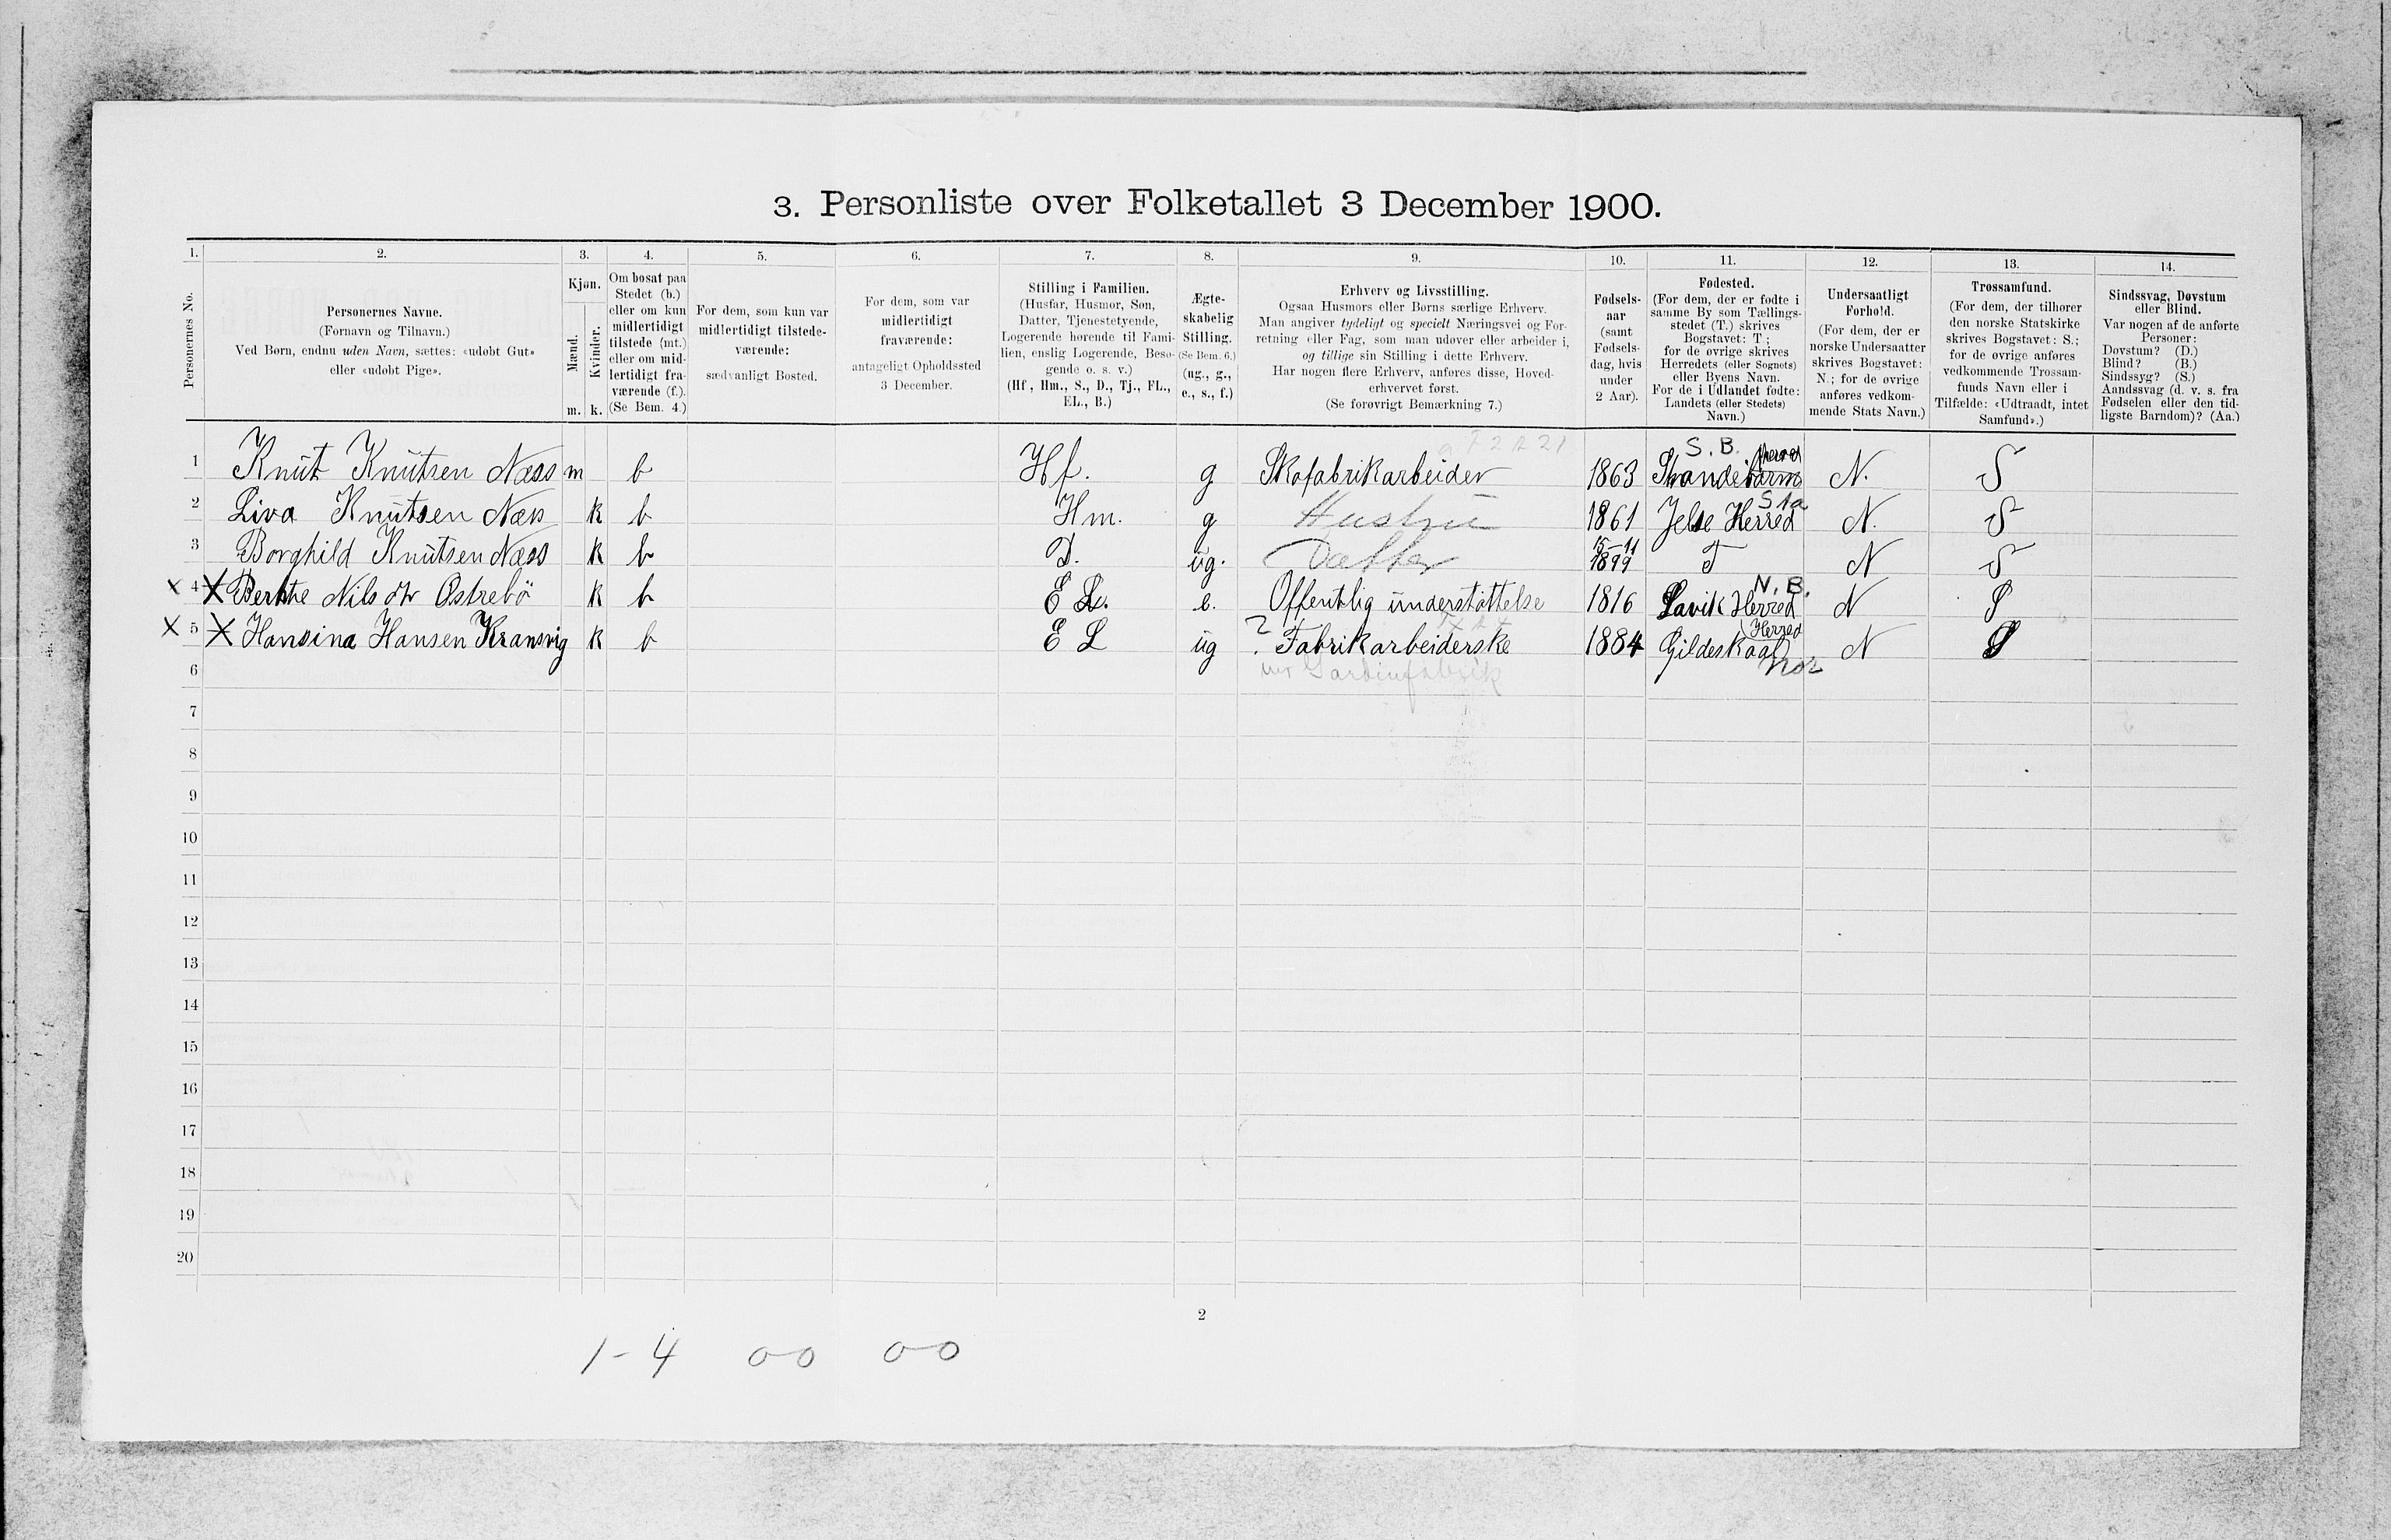 3. Personliste over Folketallet 3 December 1900.
1. 2. 3. 4. 5. 6. 7. 8. 9. 10. 11. 12. 13. 14.
Personernes No.
Personernes Navne.
(Fornavn og Tilnavn.)
Ved Børn, endnu uden Navn, sættes: «udøbt Gut»
eller «udøbt Pige».
Kjøn.
Mænd.
Kvinder.
m. k.
Om bosat paa
Stedet (b.)
eller om kun
midlertidigt
tilstede (mt.)
eller om mid-
lertidigt fra-
værende (f.).
(Se Bem. 4.)
For dem, som kun var
midlertidigt tilstede-
værende:
sædvanligt Bosted.
For dem, som var
midlertidigt
fraværende:
antageligt Opholdssted
3 December.
Stilling i Familien.
(Husfar, Husmor, Søn,
Datter, Tjenestetyende,
Logerende hørende til Fami-
lien, enslig Logerende, Besø-
gende o. s. v.)
(Hf., Hm., S., D., Tj., FL.,
EL., B.)
Ægte-
skabelig
Stilling.
(Se Bem. 6.)
(ug., g.,
e., s., f.)
Erhverv og Livsstilling.
Ogsaa Husmors eller Børns særlige Erhverv.
Man angiver tydeligt og specielt Næringsvei og For-
retning eller Fag, som man udøver eller arbeider i,
og tillige sin Stilling i dette Erhverv.
Har nogen flere Erhverv, anføres disse, Hoved-
erhvervet først.
(Se forøvrigt Bemærkning 7.)
Fødsels-
aar
(samt
Fødsels-
dag, hvis
under
2 Aar).
Fødested.
(For dem, der er fødte i
samme By som Tællings-
stedet (T.) skrives
Bogstavet: T;
for de øvrige skrives
Herredets (eller Sognets)
eller Byens Navn.
For de i Udlandet fødte:
Landets (eller Stedets)
Navn.)
Undersaatligt
Forhold.
(For dem, der er
norske Undersaatter
skrives Bogstavet:
N.; for de øvrige
anføres vedkom-
mende Stats Navn.)
Trossamfund.
(For dem, der tilhører
den norske Statskirke
skrives Bogstavet: S.;
for de øvrige anføres
vedkommende Trossam-
funds Navn eller i
Tilfælde: «Udtraadt, intet
Samfund».)
Sindssvag, Døvstum
eller Blind.
Var nogen af de anførte
Personer:
Døvstum? (D.)
Blind? (B.)
Sindssyg? (S.)
Aandssvag (d. v. s. fra
Fødselen eller den tid-
ligste Barndom)? (Aa.)
S. B. Herred
1 Knut Knutsen Næss m b Hf. g Skofabrikarbeider 1863 Strandebarm N. S
Sta
2 Liva Knutsen Næss k b Hm. g Hustru 1861 Jelse Herred N. S
15-11
3 Borghild Knutsen Næss k b D. ug. Datter 1899 T N S
N. B.
X 4 X Berthe Nils dtr Ostrebö k b E L. e. Offentlig understøttelse 1816 Lavik Herred N S
Herred
X 5 X Hansina Hansen Kransvig k b E L ug ? Fabrikarbeiderske 1884 Gildeskaal N S
Nor
6 Gardinfabrik
7
8
9
10
11
12
13
14
15
16
17
18
19
20
2
1-4 00 00